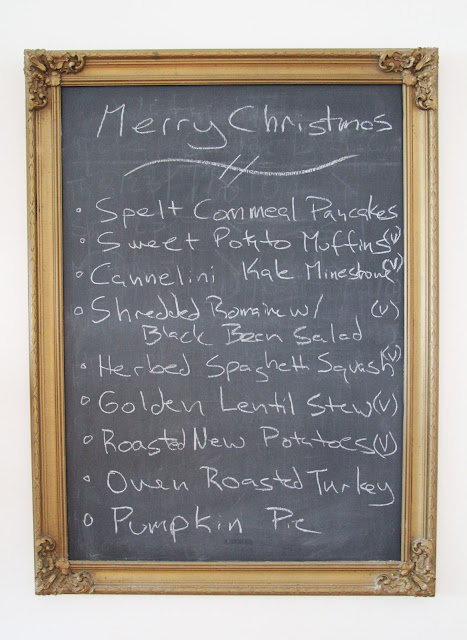 Merry Christmas
Spelt Cornmeal Pancakes
Sweet Potato Muffins (V)
Cannelini Kale Minestrone (V)
Shredded Romaine w/ (V)
Black Bean Salad
Herbed Spaghetti Squash (V)
Golden Lentil Stew (V)
Roasted New Potatoes (V)
Oven Roasted Turkey
Pumpkin Pie